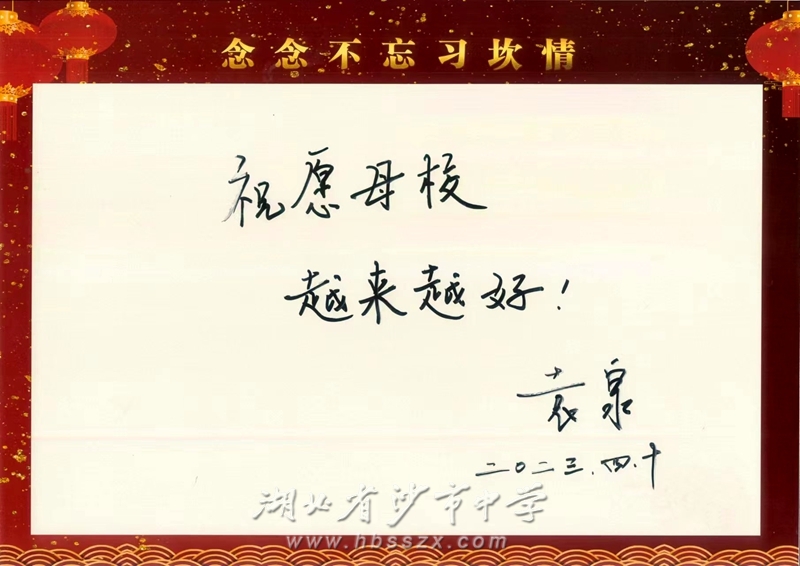 念念不忘习坎情
祝愿母校
越来越好！
袁泉
二〇二三.四.十
湖北省沙市中学
www.hbsszx.com